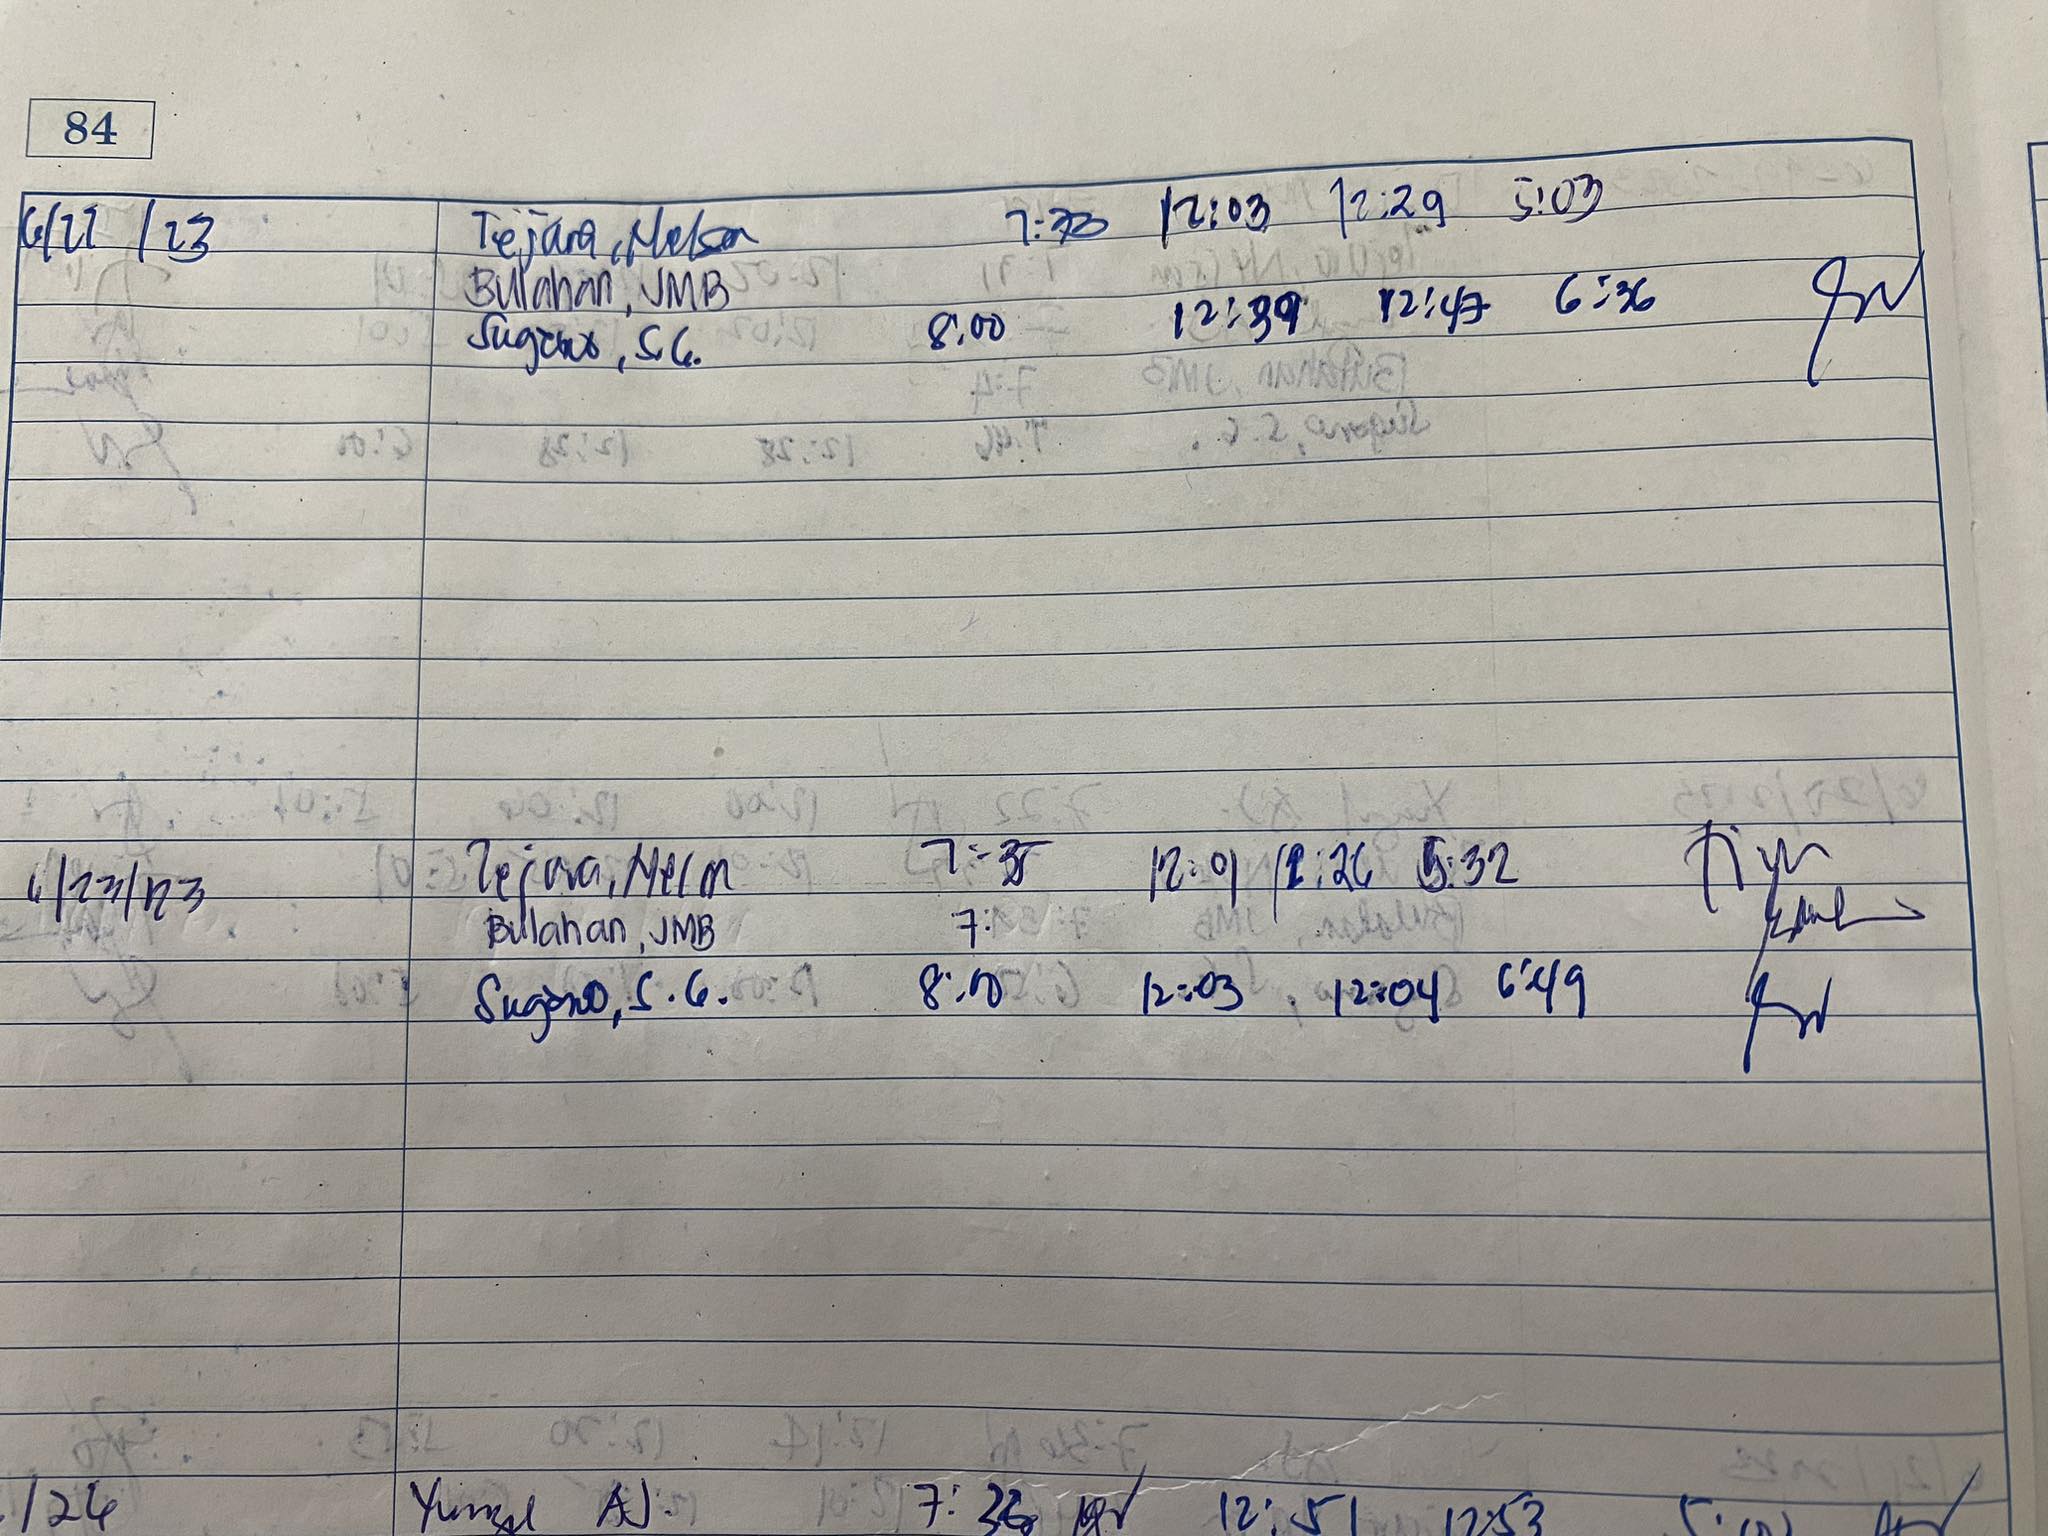 84
6/22/23 Tejara, Nelson 7:33 12:03 12:29 5:03
Bulahan, JMB
Sugano, S.G. 8:00 12:39 12:47 6:36
6/23/23 Tejara, 7:35 12:01 12:26 5:32
Bulahan, JMB 7:
Sugano, S.G. 8:00 12:03 12:04 6:49
/26 AJ. 7:36 12:51 12:53